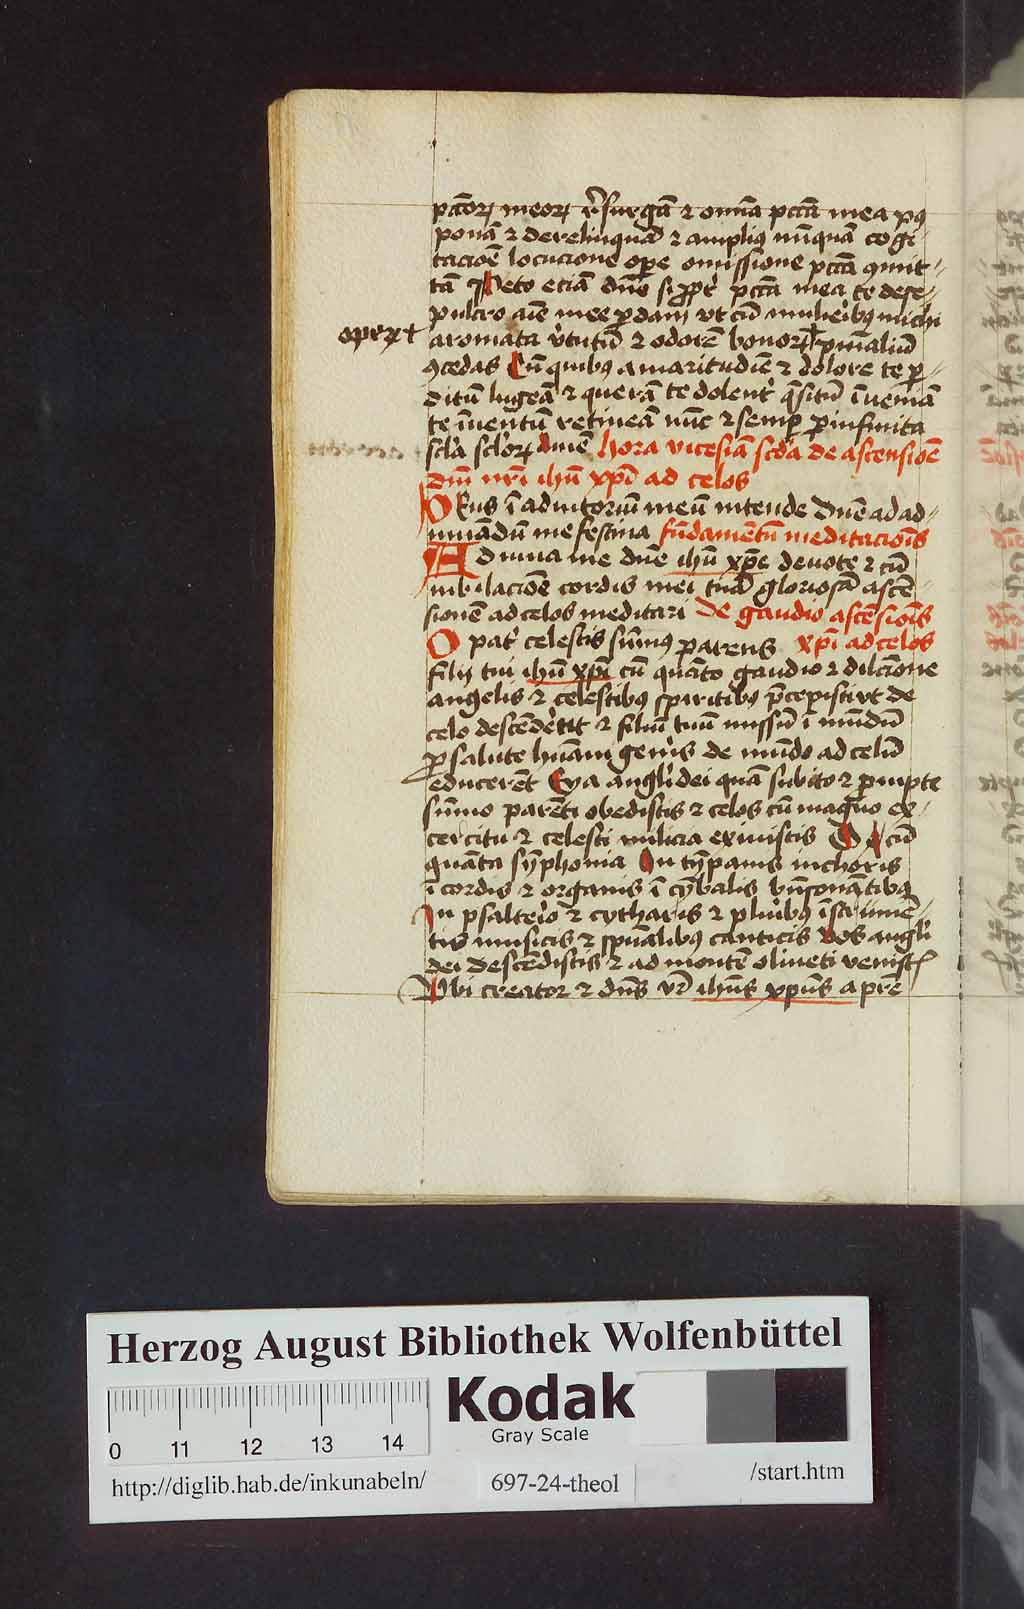 pctōꝝ meoꝝ rͤsurgā ⁊ om̄ia pctā mea ꝓ⁹
ponā ⁊ derelinquā ⁊ amplius nūquā cogi-
tacioē locucione oꝑe omissione pctā ꝯmit-
tā Peto eciā dn̄e si ꝓpt' pctā mea te de se-
pulcro aīe mee ꝑdam vt cū mulieribus michi
operū +
aromata v'tutū ⁊ odorē bonoꝝ + spūaliū
ꝯcedas Cū quibus amaritudīe ⁊ dolore te ꝑ-
ditū lugeā ⁊ querā te dolent' q̄sitū īueniā
te īuentū retineā nūc ⁊ semꝑ ꝑ infinita
scl'a scl'oꝝ amē hora vicesīa scd'a de ascensiōe
dnī nrī ihū xpī ad celos
DEus ī adiutoriū meū intende Dn̄e ad ad-
iuuādū me festina fūdamētū meditaciois
Adiuua me dn̄e ihū xp̄e deuote ⁊ cū
iubilacioē cordis mei tuā gloriosā ascē-
sionē ad celos meditari de gaudio ascēsiōis
O pat' celestis sūmus parens xpī ad celos
filij tui ihū xpī cū quāto gaudio ⁊ dilcīone
angelis ⁊ celestibus spiritibus p̄cepisti vt de
celo descēderēt ⁊ filiū tuū missū ī mūdū
ꝓ salute hūani gen'is de mūdo ad celū
educerēt Eya angl'i dei quā subito ⁊ ꝓmpte
sūmo parēti obedistis ⁊ celos cū magno ex-
cercitu ⁊ celesti milicia existis O cū
quāta sȳphonia In tȳpanis in choris
ī cordis ⁊ organis ī cȳbalis bn̄sonātibus
In psalterio ⁊ cytharis ⁊ pluribus īstrumē-
tis musicis ⁊ spūalibus canticis vos angl'i
dei descēdistis ⁊ ad montē oliueti venistis
Vbi creator ⁊ dn̄s vr̄ ihūs xpūs a pr̄e
Herzog August Bibliothek Wolfenbüttel
Kodak
Gray Scale
0 11 12 13 14
http://diglib.hab.de/inkunabeln/ 697-24-theol /start.htm